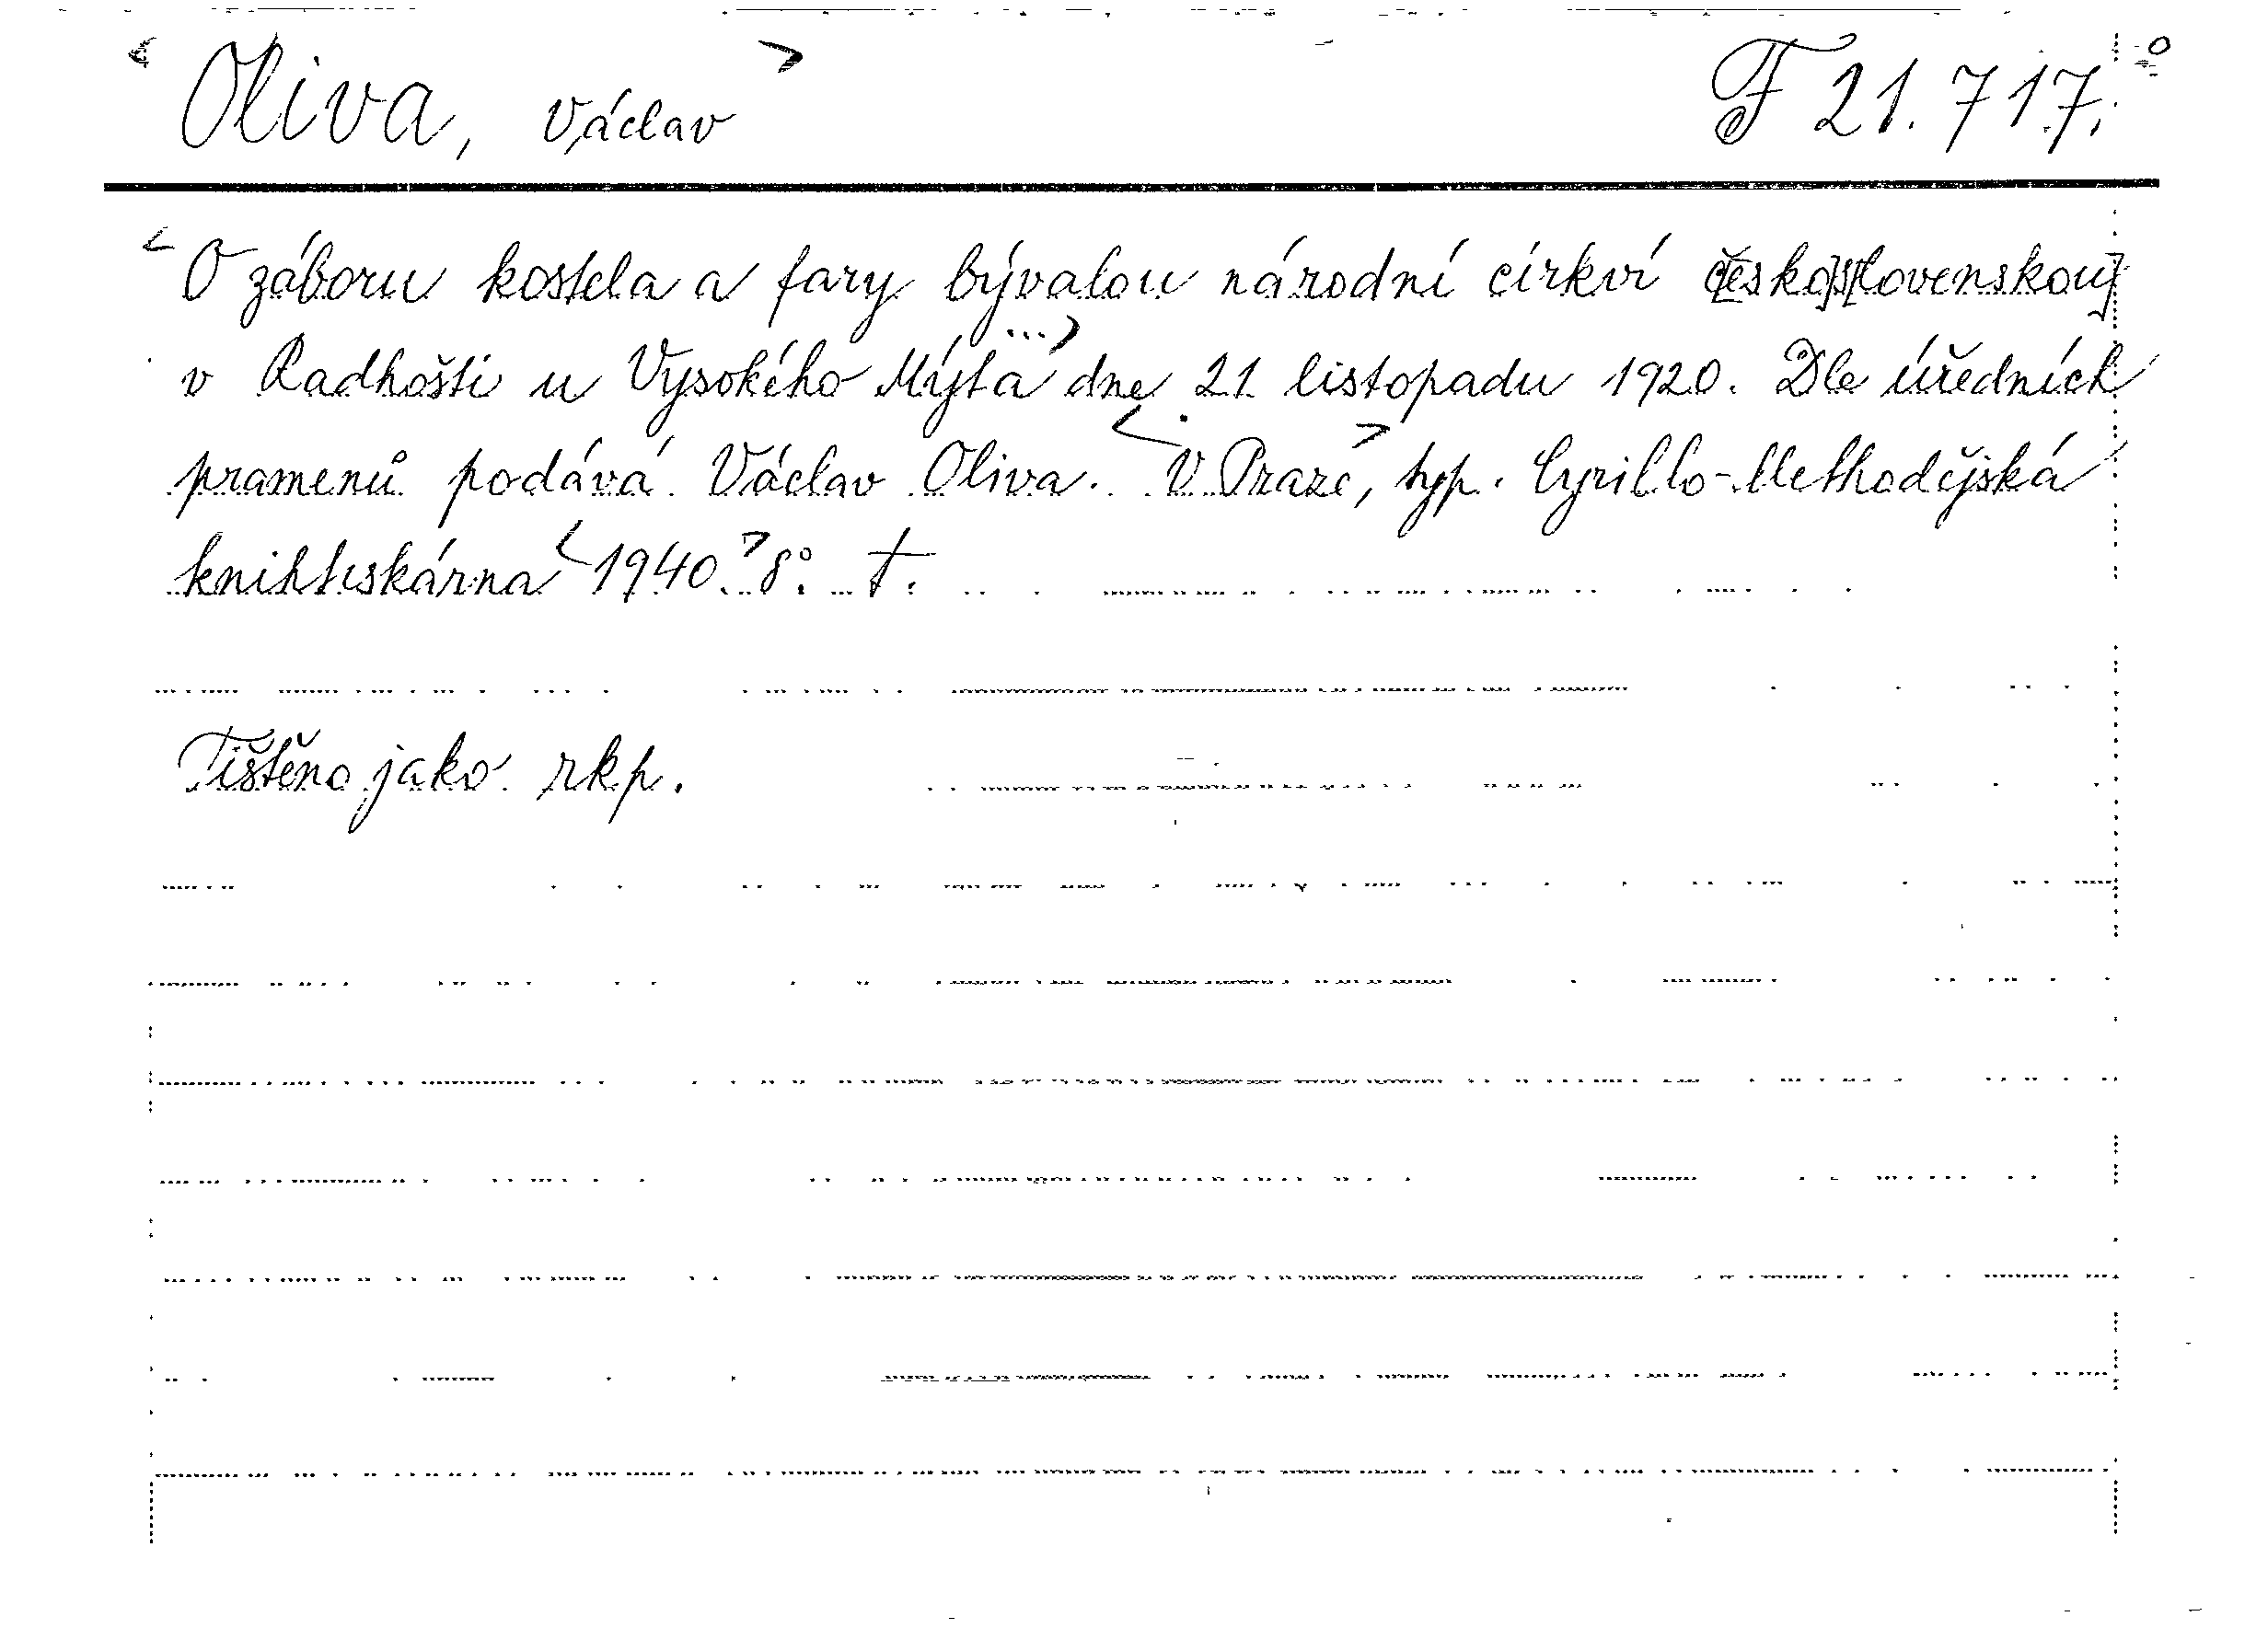 < Oliva, Václav > F 21.717.
< O záboru kostela a fary bývalou národní církví česko[slovenskou]
v Radhošti u Vysokého Mýta ...> dne 21. listopadu 1920. Dle úředních
pramenů podává Václav Oliva. < V Praze >, typ. Cyrillo-Methodějská
knihtiskárna < 1940. > 8°. †.
Tištěno jako rkp.